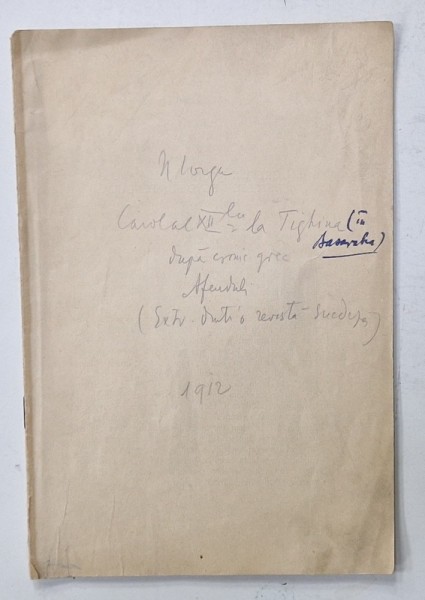 N Iorga
Carol al XII lea la Tighina (în
Basarabia)
după cronic grec
Afenduli
(Extr. dintr'o revistă suedeză)
1912